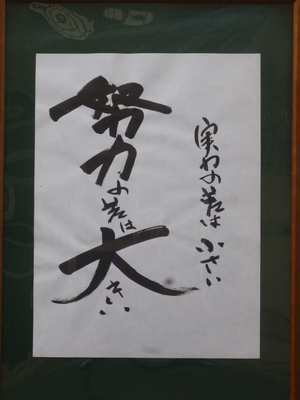 実力の差は小さい
努力の差は大きい